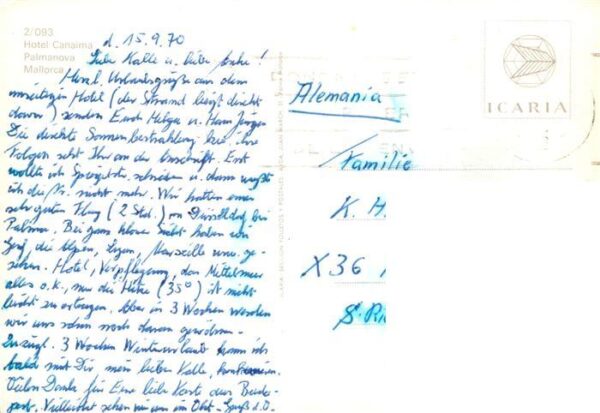 2/093
Hotel Canaima
Palmanova
Mallorca
d. 15.9.70
Liebe Kalle u. liebe
Herzl. Urlaubsgrüße aus dem
umseitigen Hotel (der Strand liegt direkt
davor) senden Euch Helga u. Hans Jürgen
Die direkte Sonnenbestrahlung hier. Ihre
Folgen seht Ihr an der Anschrift. Erst
wollte ich schreiben u. dann wußte
ich die Nr. nicht mehr. Wir hatten einen
sehr guten Flug (2 Std.) von Düsseldorf bis
Palma. Bei ganz klarer Sicht haben wir
Genf, die Alpen, Lyon, Marseille usw. ge-
sehen. Hotel, Verpflegung, das Mittelmeer
alles o.k., nur die Hitze (35°) ist nicht
leicht zu ertragen. Aber in 3 Wochen werden
wir uns schon noch daran gewöhnen.
3 Wochen Winterurlaub kann ich
bald mit Dir mein lieber Kalle,
Vielen Dank für Eure liebe Karte aus
Vielleicht sehen wir uns im Okt. Gruß d.O.
ICARIA
Alemania
Familie
K. H
X36